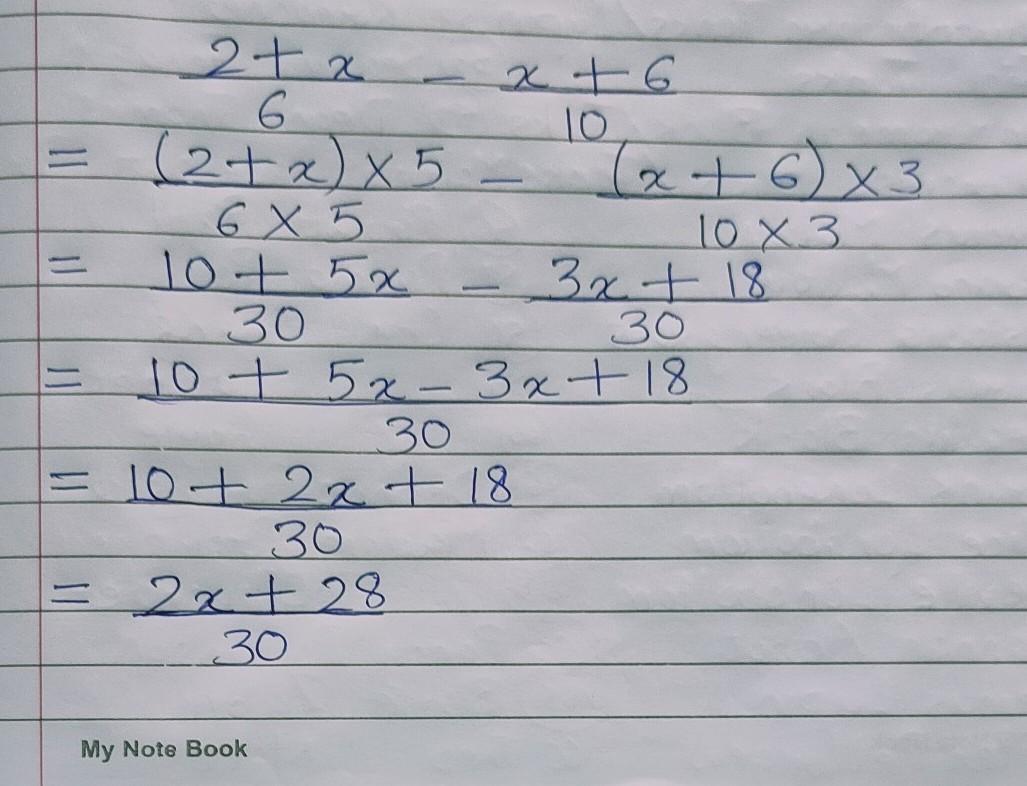 2 + x / 6 - x + 6 / 10
= (2 + x) × 5 / 6 × 5 - (x + 6) × 3 / 10 × 3
= 10 + 5x / 30 - 3x + 18 / 30
= 10 + 5x - 3x + 18 / 30
= 10 + 2x + 18 / 30
= 2x + 28 / 30
My Note Book